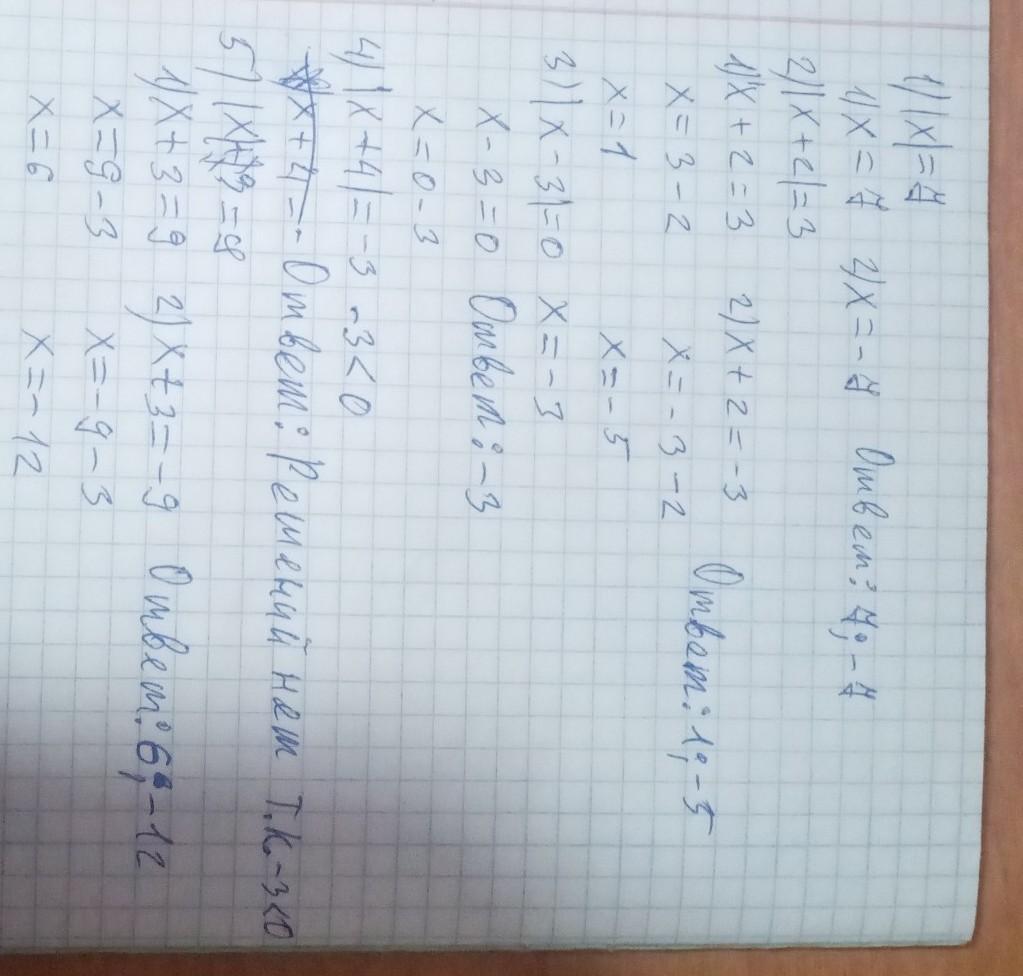 1) |x|=7
1) x=7 2) x=-7 Ответ: 7; -7
2) |x+2|=3
1) x+2=3 2) x+2=-3
x=3-2 x=-3-2 Ответ: 1; -5
x=1 x=-5
3) |x-3|=0 x=-3
x-3=0 Ответ: -3
x=0-3
4) |x+4|=-3 -3<0
x+4=- Ответ: Решений нет т.к. -3<0
5) |x+3=9
1) x+3=9 2) x+3=-9 Ответ: 6; -12
x=9-3 x=-9-3
x=6 x=-12